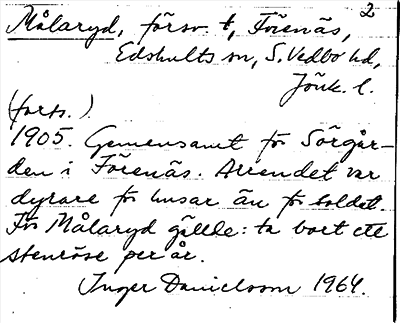 2
Målaryd, försv. t, Förenäs,
Edshults sn, S. Vedbo hd,
Jönk. l.
(forts.).
1905. Gemensamt för Sörgår-
den i Förenäs. Arrendet var
dyrare för husar än för soldat.
För Målaryd gällde: ta bort ett
stenröse per år.
Inger Danielsson 1964.